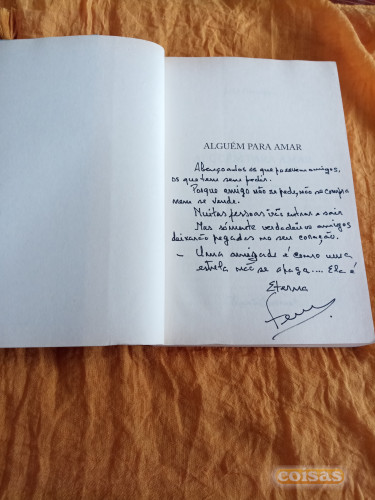 ALGUÉM PARA AMAR
Abençoados os que possuem amigos,
os que tem sem pedir.
Porque amigo não se pede, não se compra
nem se vende.
Muitas pessoas irão entrar e sair
Mas somente verdadeiros amigos
deixarão pegadas no seu coração.
- Uma amizade é como uma
estrela não se apaga.... Ela é
Eterna
coisas